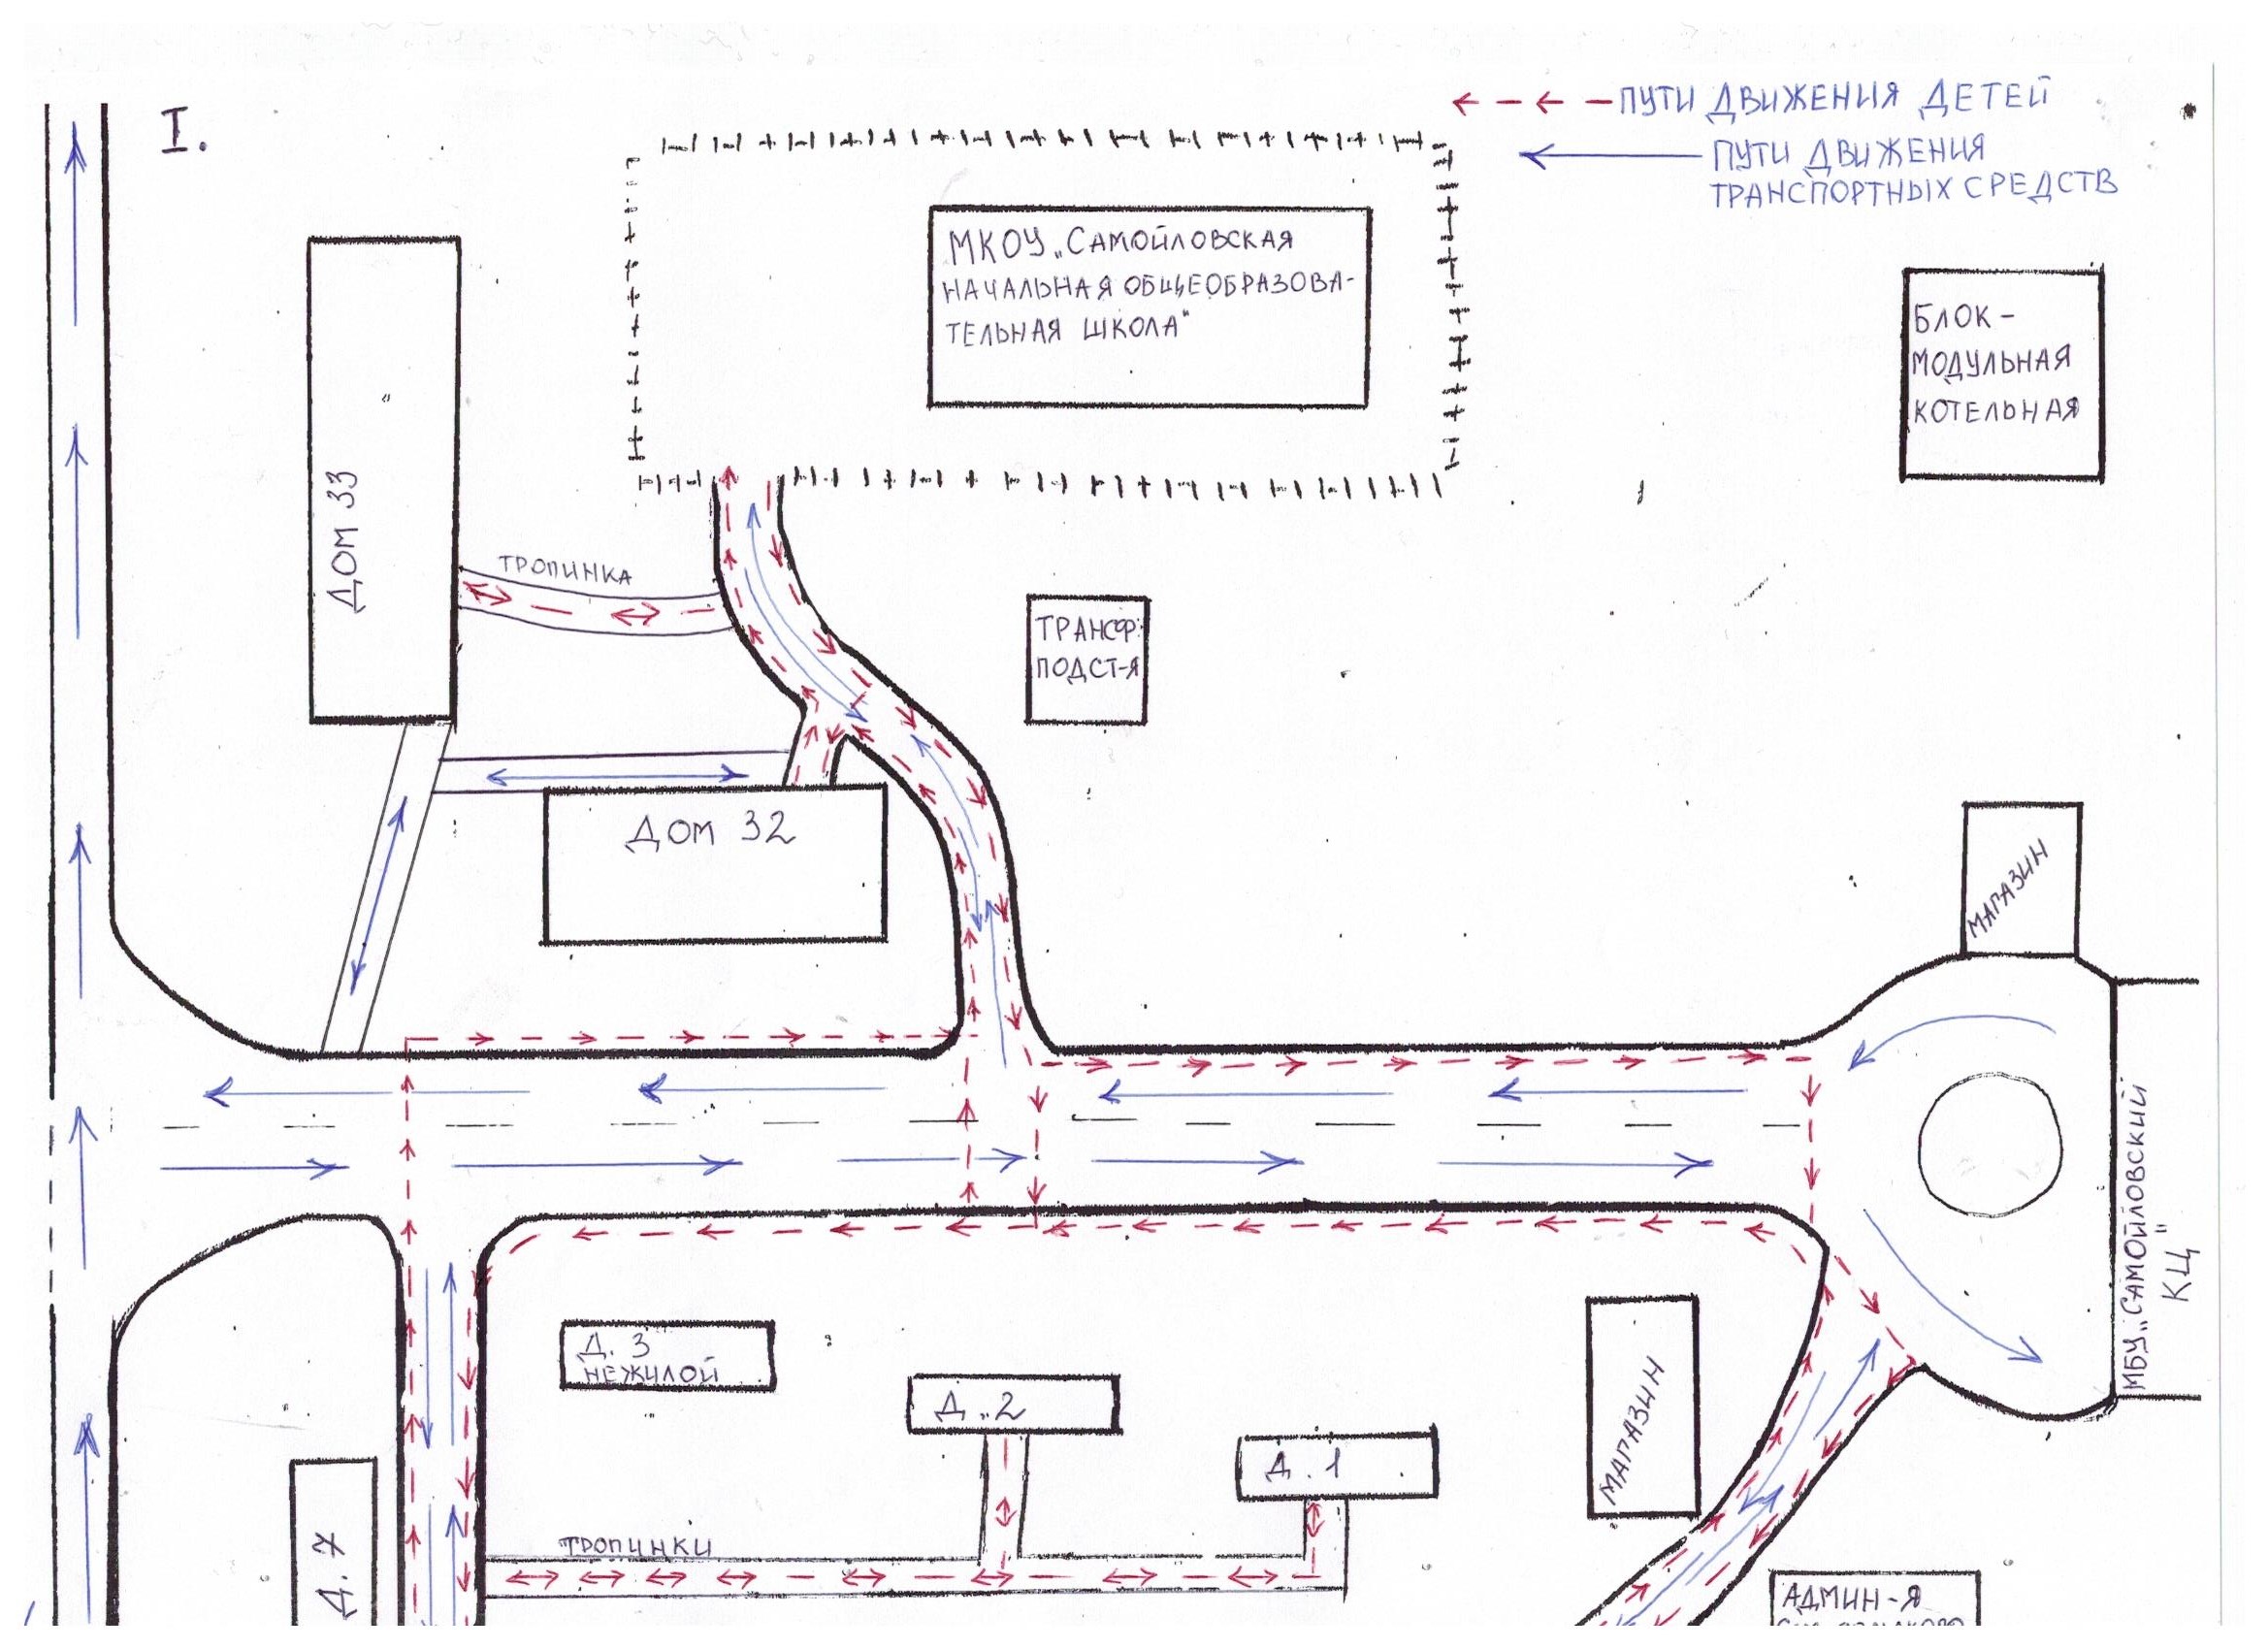 I.
ПУТИ ДВИЖЕНИЯ ДЕТЕЙ
ПУТИ ДВИЖЕНИЯ
ТРАНСПОРТНЫХ СРЕДСТВ
МКОУ „САМОЙЛОВСКАЯ
НАЧАЛЬНАЯ ОБЩЕОБРАЗОВА-
ТЕЛЬНАЯ ШКОЛА"
БЛОК-
МОДУЛЬНАЯ
КОТЕЛЬНАЯ
ДОМ 33
ТРОПИНКА
ТРАНСФ.
ПОДСТ-Я
ДОМ 32
МАГАЗИН
МБУ „САМОЙЛОВСКИЙ
КЦ"
Д. 3
НЕЖИЛОЙ
Д. 2
Д. 1
МАГАЗИН
Д. 7
ТРОПИНКИ
АДМИН-Я